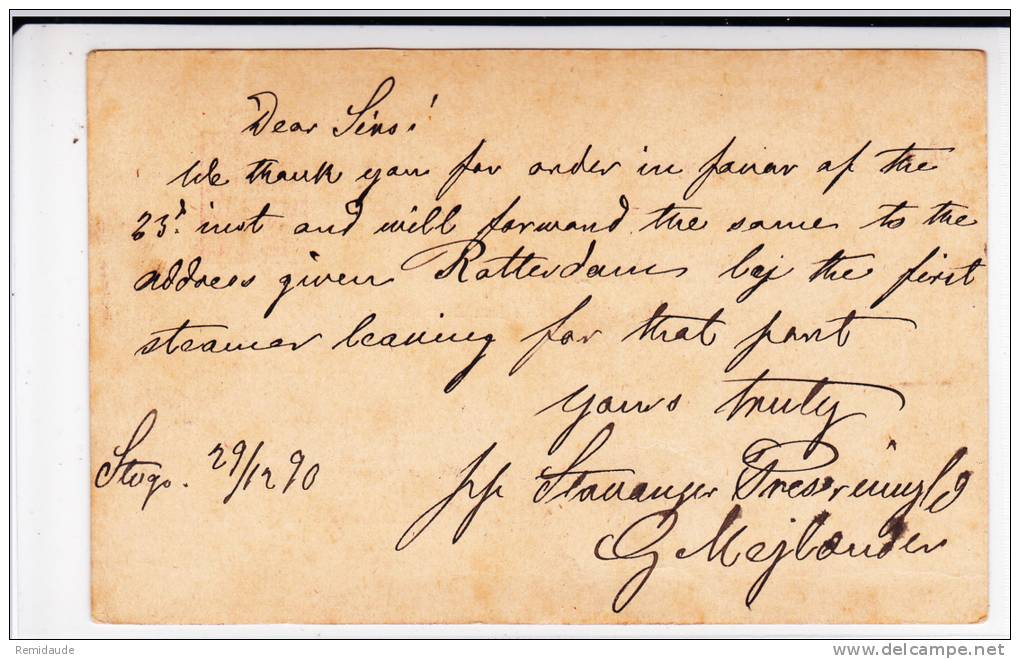 Dear Sirs!
We thank you for order in favor of the
23d. inst and will forward the same to the
address given Rotterdam by the first
steamer leaving for that port
Yours truly
Stvgr. 29/12 90
pp Stavanger Preserving Co
G Mejlænder
Remidaude
delcampe.net